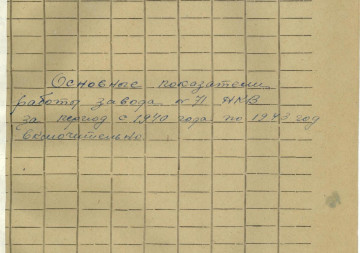 Основные показатели
работы завода № 71 НКВ
за период с 1940 года по 1943 год
включительно.